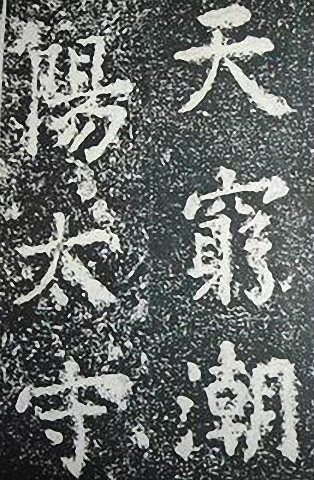 天窮潮
陽太守